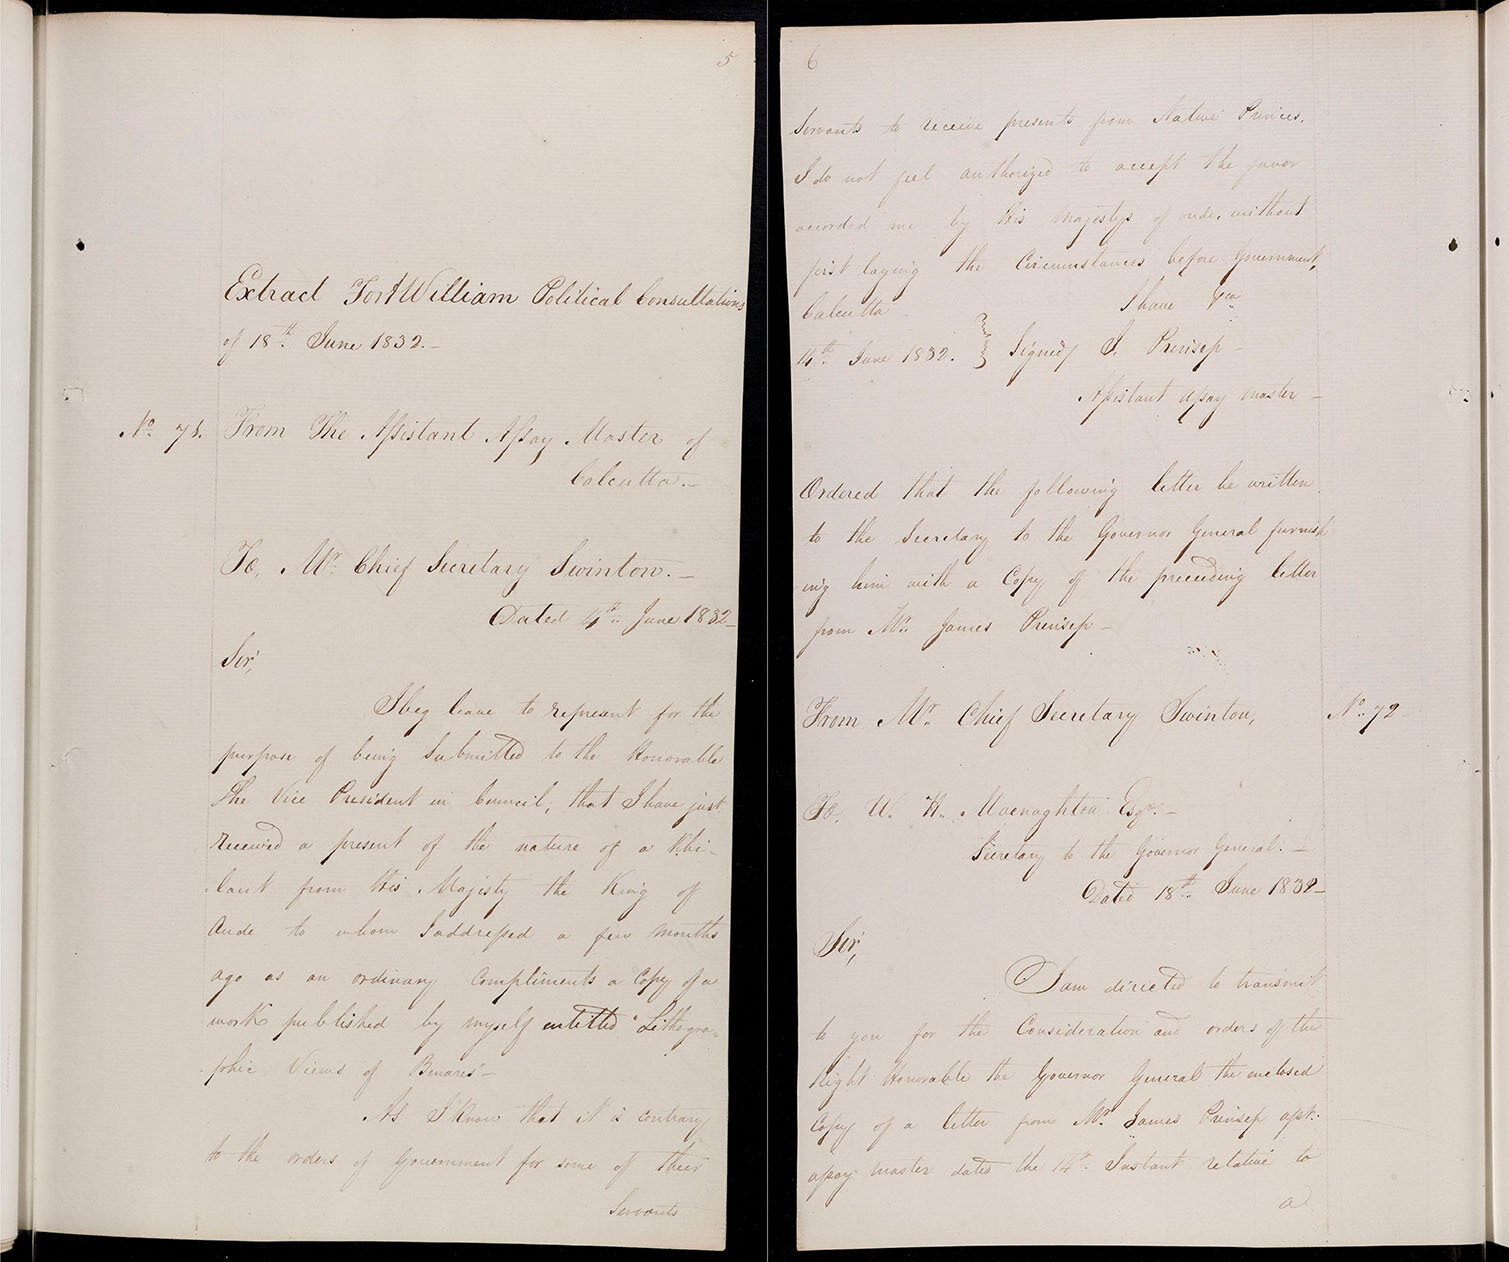 5
Extract Fort William Political Consultations
of 18th June 1832.
No. 71. From The Assistant Assay Master of
Calcutta.
To, Mr. Chief Secretary Swinton.
Dated 14th June 1832
Sir,
I beg leave to represent for the
purpose of being submitted to the Honorable
The Vice President in Council, that I have just
received a present of the nature of a Khi-
laut from His Majesty the King of
Aude to whom I addressed a few months
ago as an ordinary Compliments a Copy of a
work published by myself entitled "Lithogra-
phic Views of Benares"
As I know that it is contrary
to the orders of Government for some of their
Servants
6
Servants to receive presents from Native Princes,
I do not feel authorized to accept the favor
accorded me by His Majestys of oude, without
first laying the Circumstances before Government,
Calcutta I have &ca
14th June 1832. Signed/ J. Prinsep
Assistant Assay master
Ordered that the following letter be written
to the Secretary to the Governor General furnish
ing him with a Copy of the preceeding letter
from Mr. James Prinsep
From Mr. Chief Secretary Swinton, No. 72
To, W. H. Macnaghten Esqr.
Secretary to the Governor General.
Dated 18th June 1832
Sir,
I am directed to transmit
to you for the Consideration and orders of the
Right Honorable the Governor General the enclosed
Copy of a letter from Mr. James Prinsep asst.
assay master dated the 14th Instant relative to
a